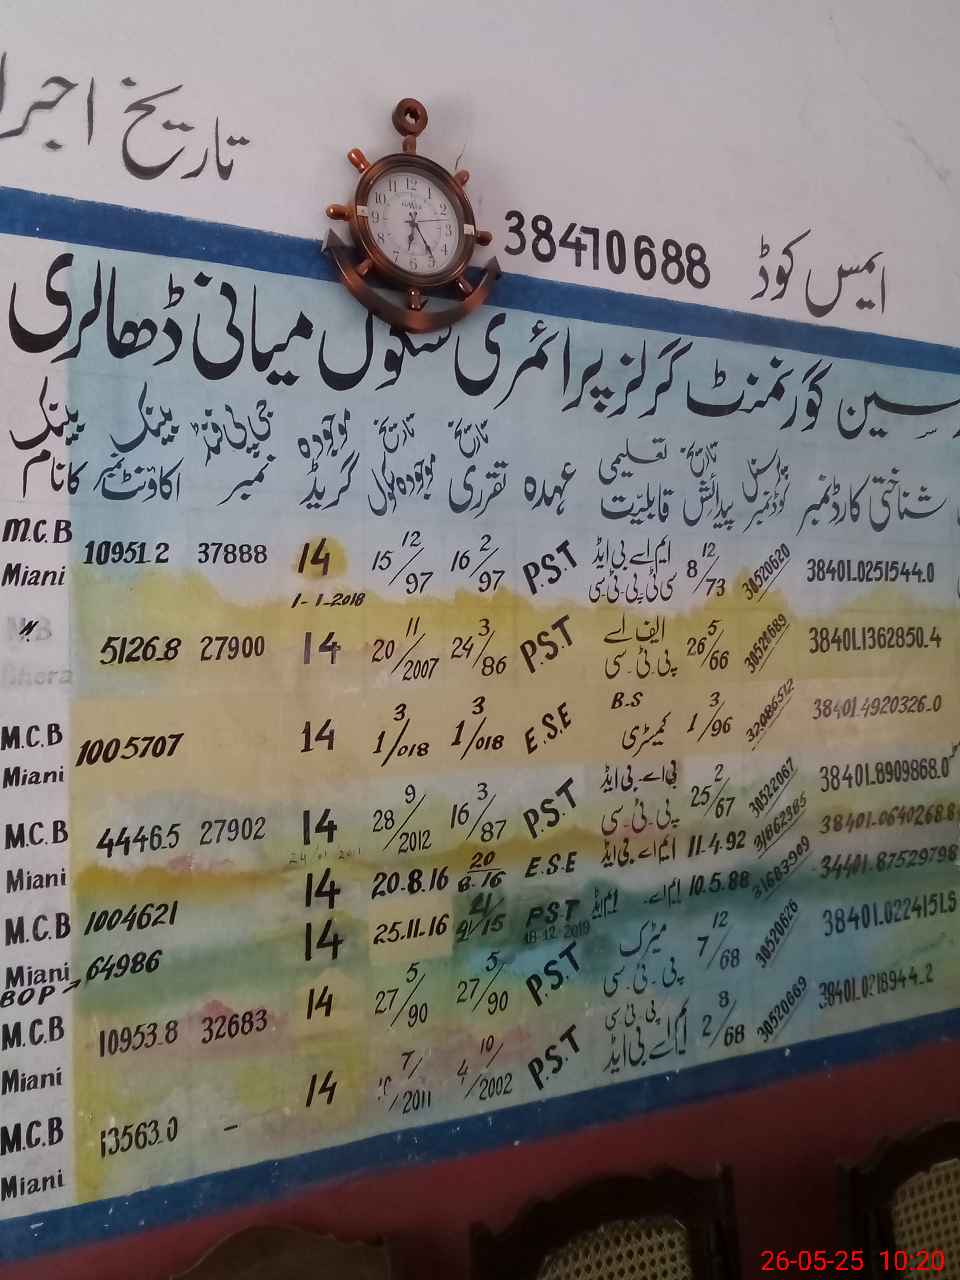 تاریخ اجرا
ایمس کوڈ 38470688
سین گورنمنٹ گرلز پرائمری سکول میانی ڈھالری
شناختی کارڈ نمبر پرسنل کوڈ نمبر تاریخ پیدائش تعلیمی قابلیّت عہدہ تاریخ تقرری تاریخ موجودہ سکول موجودہ گریڈ جی پی فنڈ نمبر بینک اکاؤنٹ نمبر بینک کا نام
38401.0251544.0 30520620 8 12/73 ایم اے بی ایڈ سی ٹی پی ٹی سی P.S.T 16 2/97 15 12/97 14 37888 10951.2 M.C.B Miani
1-1-2018
38401.1362850.4 30528689 26 5/66 ایف اے پی ٹی سی P.S.T 24 3/86 20 11/2007 14 27900 5126.8
38401.4920326.0 32086512 1 3/96 B.S کیمسٹری E.S.E 1 3/018 1 3/018 14 1005707 M.C.B Miani
38401.8909868.0 30522067 25 2/67 بی اے۔ بی ایڈ پی۔ٹی۔سی P.S.T 16 3/87 28 9/2012 14 27902 4446.5 M.C.B Miani
38401.0640268.8 31862365 11.4.92 ایم اے بی ایڈ E.S.E 20 8.16 20.8.16 14 1004621 M.C.B Miani
34401.87529798 31683909 10.5.88 ایم اے۔ ایم ایڈ P.S.T 25.11.16 14 64986 BOP
18-12-2019
38401.0224151.8 30520626 7 12/68 میٹرک پی۔ٹی۔سی P.S.T 27 5/90 27 5/90 14 32683 10953.8 M.C.B Miani
38401.0218944.2 30520669 2 8/68 پی ٹی سی ایم اے بی ایڈ P.S.T 4 10/2002 7/2011 14 - 13563.0 M.C.B Miani
26-05-25 10:20